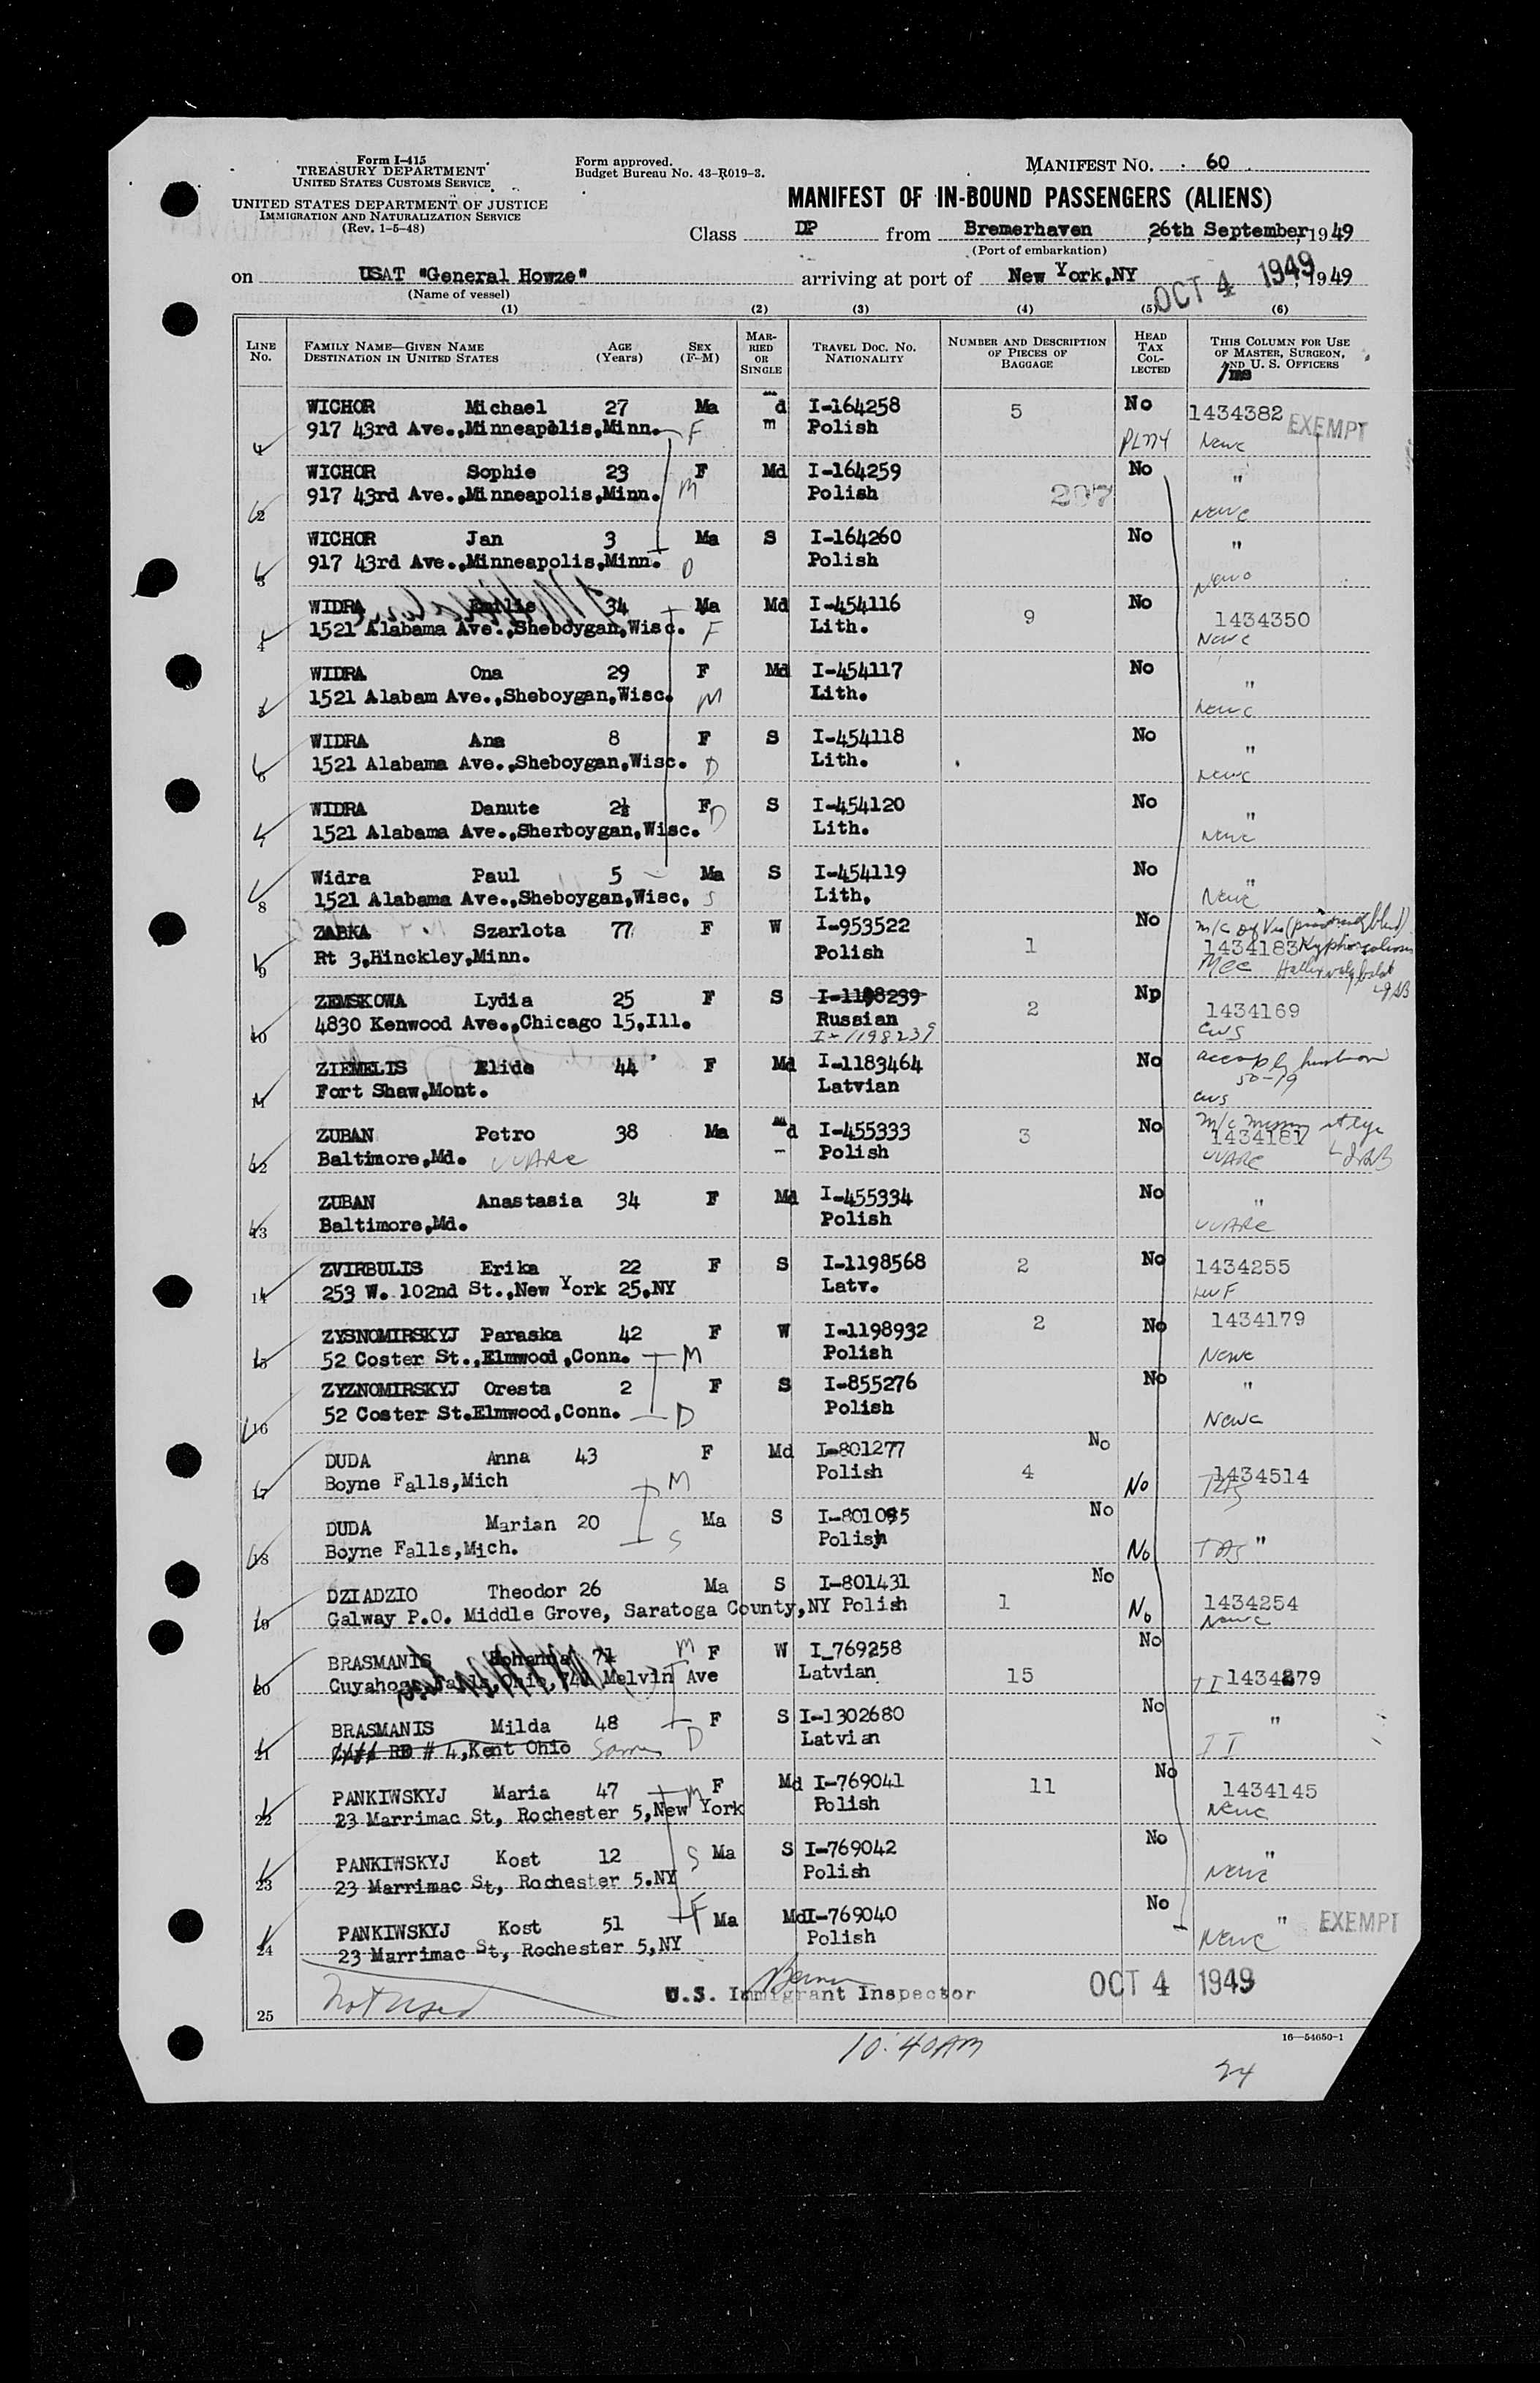 Form I-415
TREASURY DEPARTMENT
UNITED STATES CUSTOMS SERVICE
UNITED STATES DEPARTMENT OF JUSTICE
IMMIGRATION AND NATURALIZATION SERVICE
(Rev. 1-5-48)
Form approved.
Budget Bureau No. 43-R019-3.
MANIFEST NO. 60
MANIFEST OF IN-BOUND PASSENGERS (ALIENS)
Class DP from Bremerhaven, 26th September, 1949
(Port of embarkation)
on USAT "General Howze" arriving at port of New York,NY OCT 4 1949, 1949
(Name of vessel)
(1) (2) (3) (4) (5) (6)
LINE NO. FAMILY NAME—GIVEN NAME DESTINATION IN UNITED STATES AGE (Years) SEX (F-M) MARRIED OR SINGLE TRAVEL DOC. NO. NATIONALITY NUMBER AND DESCRIPTION OF PIECES OF BAGGAGE HEAD TAX COLLECTED THIS COLUMN FOR USE OF MASTER, SURGEON, AND U. S. OFFICERS
WICHOR Michael 27 Ma d I-164258 5 No 1434382 EXEMPT
917 43rd Ave.,Minneapolis,Minn. F m Polish NCWC
WICHOR Sophie 23 F Md I-164259 No "
2 917 43rd Ave.,Minneapolis,Minn. M Polish 207 NCWC
WICHOR Jan 3 Ma S I-164260 No "
3 917 43rd Ave.,Minneapolis,Minn. Polish NCWC
WIDRA 34 Ma Md I-454116 9 No 1434350
4 1521 Alabama Ave.,Sheboygan,Wisc. F Lith. NCWC
WIDRA Ona 29 F Md I-454117 No "
5 1521 Alabam Ave.,Sheboygan,Wisc. M Lith. NCWC
WIDRA Ana 8 F S I-454118 No "
6 1521 Alabama Ave.,Sheboygan,Wisc. D Lith. NCWC
WIDRA Danute 2½ F D S I-454120 No "
7 1521 Alabama Ave.,Sherboygan,Wisc. Lith. NCWC
Widra Paul 5 Ma S I-454119 No "
8 1521 Alabama Ave.,Sheboygan,Wisc. S Lith. NCWC
ZABKA Szarlota 77 F W I-953522 1 No 1434183
9 Rt 3,Hinckley,Minn. Polish
ZEMSKOWA Lydia 25 F S I-1198239 2 Np 1434169
10 4830 Kenwood Ave.,Chicago 15,Ill. Russian CWS
I-1198239
ZIEMELIS Elide 44 F Md I-1183464 No
11 Fort Shaw,Mont. Latvian CWS
ZUBAN Petro 38 Ma d I-455333 3 No 1434181
12 Baltimore,Md. UUARC Polish UUARC
ZUBAN Anastasia 34 F Md I-455334 No "
13 Baltimore,Md. Polish UUARC
ZVIRBULIS Erika 22 F S I-1198568 2 No 1434255
14 253 W. 102nd St.,New York 25,NY Latv. LWF
ZYSNOMIRSKYJ Paraska 42 F W I-1198932 2 No 1434179
15 52 Coster St.,Elmwood,Conn. M Polish NCWC
ZYZNOMIRSKYJ Oresta 2 F S I-855276 No "
16 52 Coster St.Elmwood,Conn. D Polish NCWC
DUDA Anna 43 F Md I-801277 4 No
17 Boyne Falls,Mich M Polish No 1434514
DUDA Marian 20 Ma S I-801095 No
18 Boyne Falls,Mich. S Polish No "
DZIADZIO Theodor 26 Ma S I-801431 1 No
19 Galway P.O. Middle Grove, Saratoga County,NY Polish No 1434254
NCWC
BRASMANIS 71 M F W I_769258 15 No
20 Cuyahoga Falls, Ohio, Melvin Ave Latvian 1434879
BRASMANIS Milda 48 F S I-1302680 No "
21 RD # 4,Kent Ohio Same D Latvian
PANKIWSKYJ Maria 47 M F Md I-769041 11 No 1434145
22 23 Marrimac St, Rochester 5,New York Polish NCWC
PANKIWSKYJ Kost 12 S Ma S I-769042 No "
23 23 Marrimac St, Rochester 5.NY Polish NCWC
PANKIWSKYJ Kost 51 F Ma Md I-769040 No " EXEMPT
24 23 Marrimac St, Rochester 5,NY Polish NCWC
25 Not used U.S. Immigrant Inspector OCT 4 1949
16—54650-1
10:40AM
24